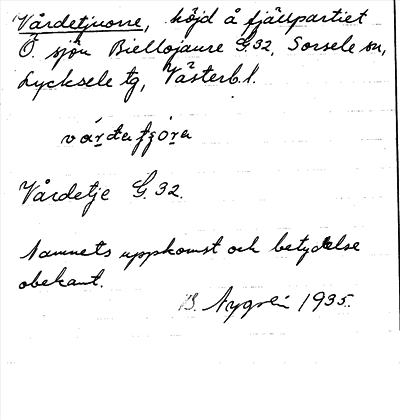 Vårdetjuorre, höjd å fjällpartiet
Ö. sjön Biellojaure G.32, Sorsele sn,
Lycksele tg, Västerb.l.
vár̥deti̯ȯra
Vårdetje G.32.
Namnets uppkomst och betydelse
obekant.
B. Nygren 1935.